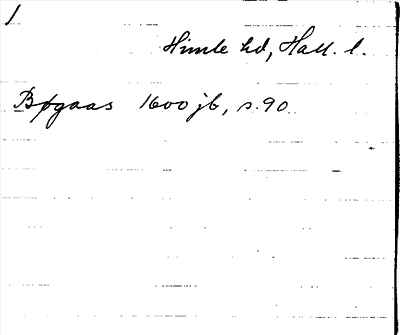 1
Himle hd, Hall. l.
Bøgaas 1600 jb, s. 90.